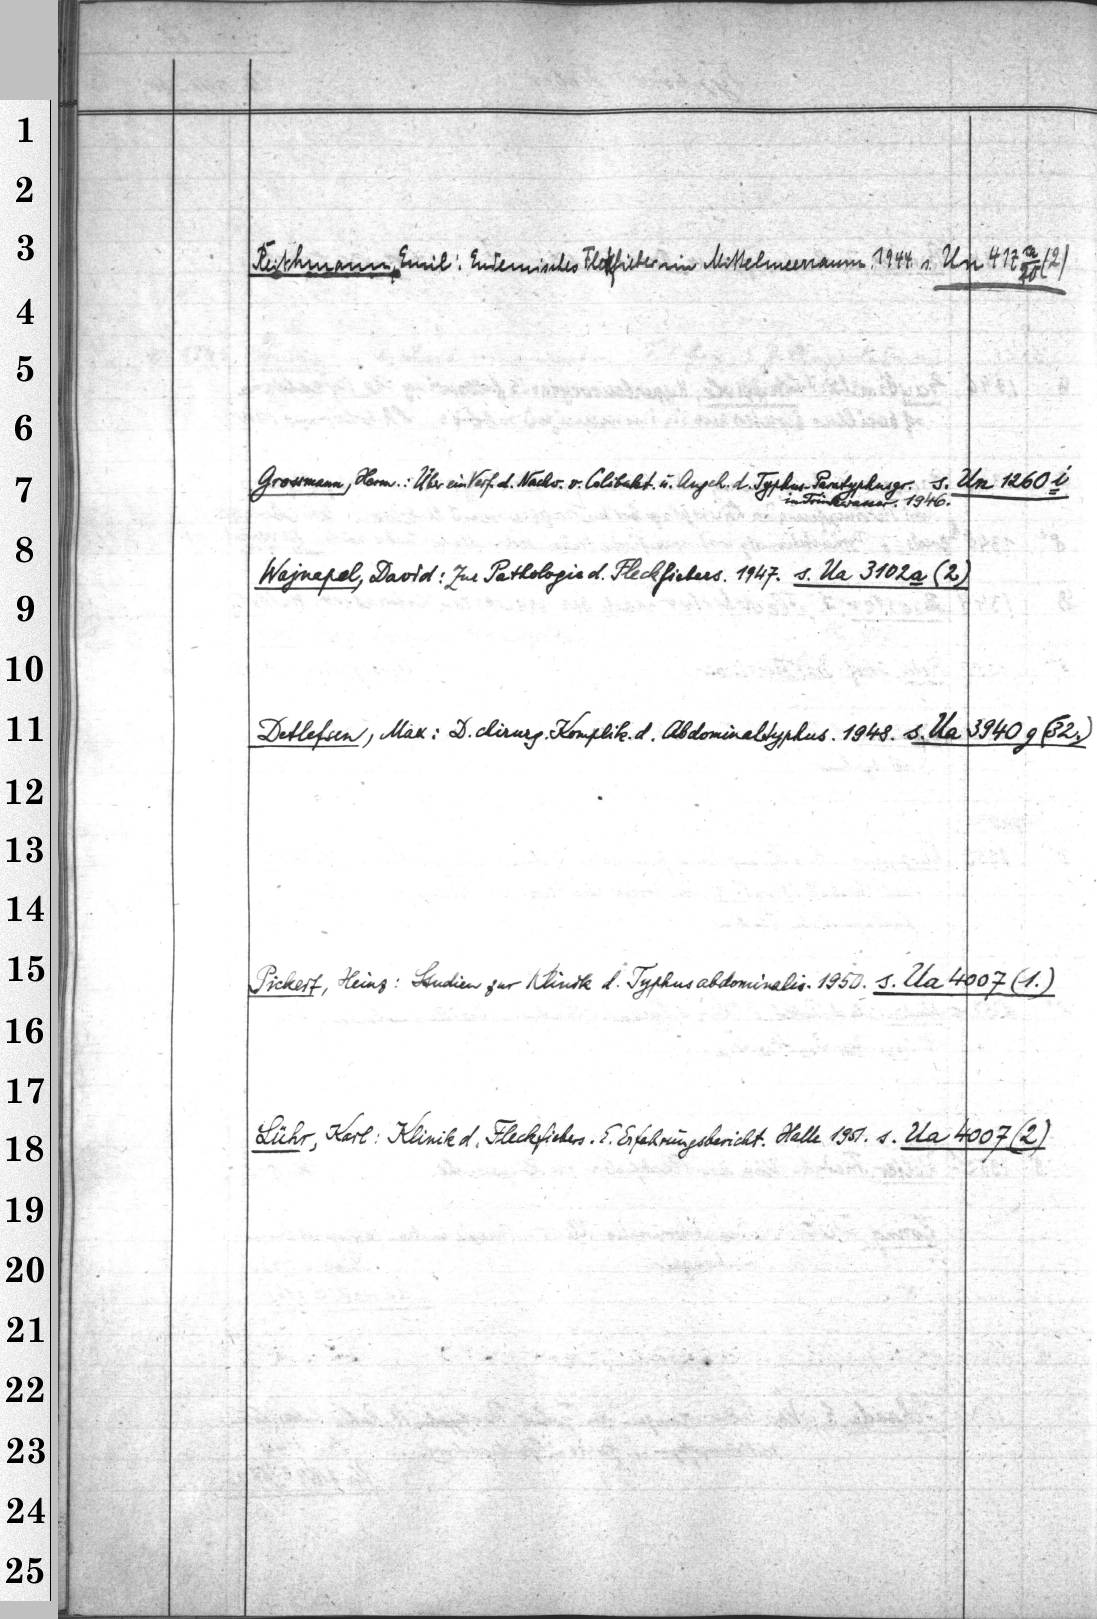 1
2
3
Reithmann, Emil: Endemisches Fleckfieber im Mittelmeerraum. 1944. s. Un 417 (2)
4
5
6
7
Grossmann, Herm.: Über ein Verf. d. Nachw. v. Colibakt. u. Angeh. d. Typhus-Paratyphusgr. s. Un 1260 i
in Trinkwasser. 1946.
8
Wajnapel, David: Zur Pathologie d. Fleckfiebers. 1947. s. Ua 3102a (2)
9
10
11
Detlefsen, Max: D. chirurg. Komplik. d. Abdominaltyphus. 1948. s. Ua 3940 g (32.)
12
13
14
15
Pickert, Heinz: Studien zur Klinik d. Typhus abdominalis. 1950. s. Ua 4007 (1.)
16
17
18
Lühr, Karl: Klinik d. Fleckfiebers. E. Erfahrungsbericht. Halle 1951. s. Ua 4007 (2)
19
20
21
22
23
24
25